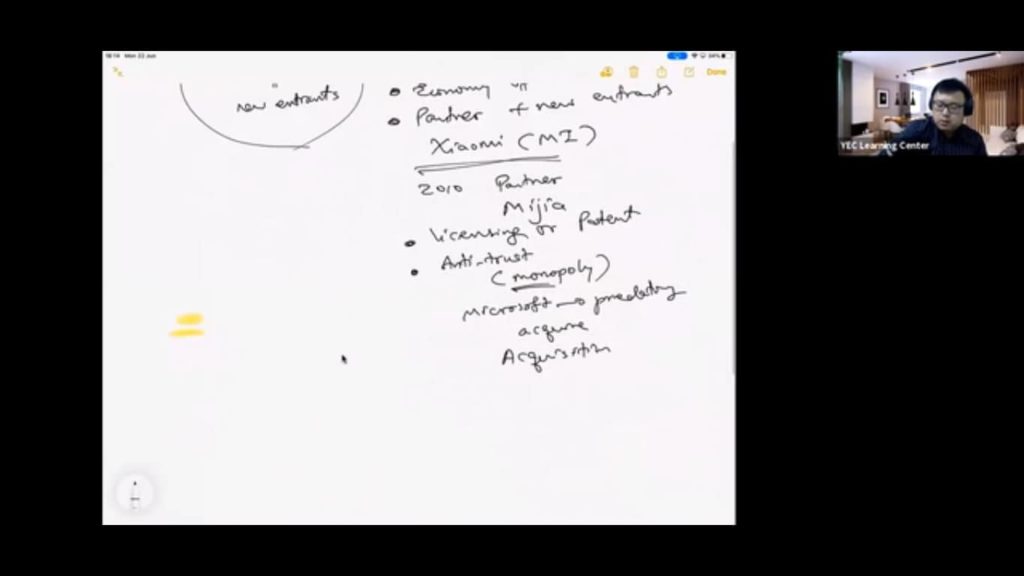 18:14 Mon 22 Jun
34%
Done
new entrants
• Economy
• Partner + new entrants
Xiaomi (MI)
2010 Partner
Mijia
• licensing or Patent
• Anti-trust
(monopoly)
Microsoft →
acquire
Acquisition
YEC Learning Center